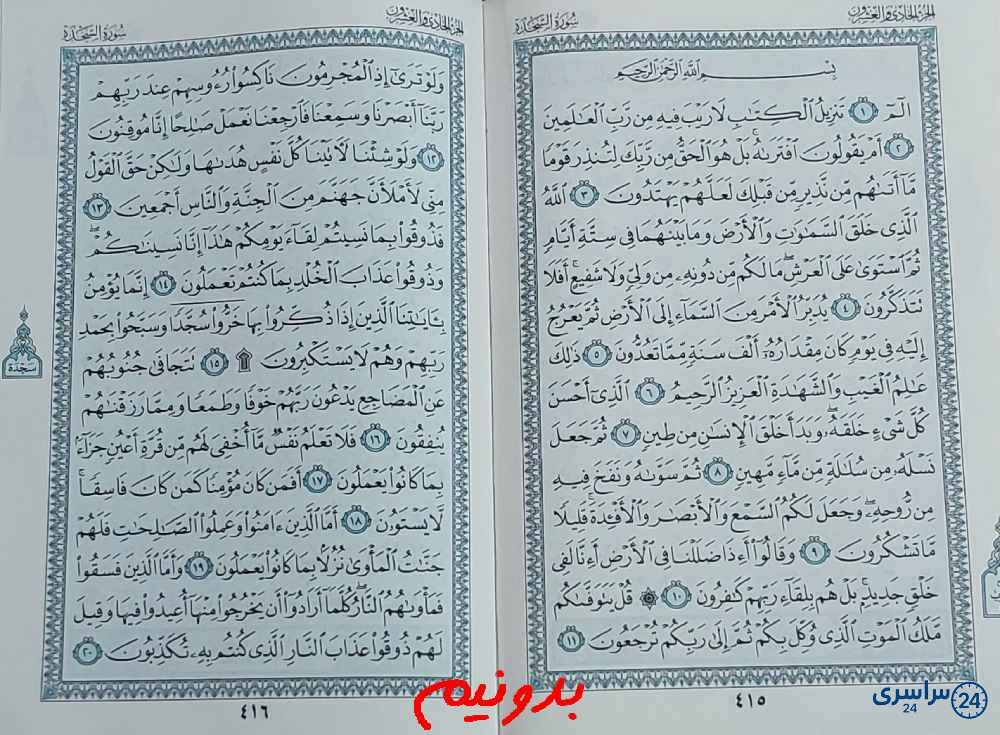 الجزء الحادي والعشرون
سورة السجدة
بسم الله الرحمن الرحيم
الٓمٓ ١ تَنزِيلُ ٱلۡكِتَٰبِ لَا رَيۡبَ فِيهِ مِن رَّبِّ ٱلۡعَٰلَمِينَ
٢ أَمۡ يَقُولُونَ ٱفۡتَرَىٰهُۚ بَلۡ هُوَ ٱلۡحَقُّ مِن رَّبِّكَ لِتُنذِرَ قَوۡمٗا
مَّآ أَتَىٰهُم مِّن نَّذِيرٖ مِّن قَبۡلِكَ لَعَلَّهُمۡ يَهۡتَدُونَ ٣ ٱللَّهُ
ٱلَّذِي خَلَقَ ٱلسَّمَٰوَٰتِ وَٱلۡأَرۡضَ وَمَا بَيۡنَهُمَا فِي سِتَّةِ أَيَّامٖ
ثُمَّ ٱسۡتَوَىٰ عَلَى ٱلۡعَرۡشِۖ مَا لَكُم مِّن دُونِهِۦ مِن وَلِيّٖ وَلَا شَفِيعٍۚ أَفَلَا
تَتَذَكَّرُونَ ٤ يُدَبِّرُ ٱلۡأَمۡرَ مِنَ ٱلسَّمَآءِ إِلَى ٱلۡأَرۡضِ ثُمَّ يَعۡرُجُ
إِلَيۡهِ فِي يَوۡمٖ كَانَ مِقۡدَارُهُۥٓ أَلۡفَ سَنَةٖ مِّمَّا تَعُدُّونَ ٥ ذَٰلِكَ
عَٰلِمُ ٱلۡغَيۡبِ وَٱلشَّهَٰدَةِ ٱلۡعَزِيزُ ٱلرَّحِيمُ ٦ ٱلَّذِيٓ أَحۡسَنَ
كُلَّ شَيۡءٍ خَلَقَهُۥۖ وَبَدَأَ خَلۡقَ ٱلۡإِنسَٰنِ مِن طِينٖ ٧ ثُمَّ جَعَلَ
نَسۡلَهُۥ مِن سُلَٰلَةٖ مِّن مَّآءٖ مَّهِينٖ ٨ ثُمَّ سَوَّىٰهُ وَنَفَخَ فِيهِ
مِن رُّوحِهِۦۖ وَجَعَلَ لَكُمُ ٱلسَّمۡعَ وَٱلۡأَبۡصَٰرَ وَٱلۡأَفۡـِٔدَةَۚ قَلِيلٗا
مَّا تَشۡكُرُونَ ٩ وَقَالُوٓاْ أَءِذَا ضَلَلۡنَا فِي ٱلۡأَرۡضِ أَءِنَّا لَفِي
خَلۡقٖ جَدِيدِۭۚ بَلۡ هُم بِلِقَآءِ رَبِّهِمۡ كَٰفِرُونَ ١٠ ۞ قُلۡ يَتَوَفَّىٰكُم
مَّلَكُ ٱلۡمَوۡتِ ٱلَّذِي وُكِّلَ بِكُمۡ ثُمَّ إِلَىٰ رَبِّكُمۡ تُرۡجَعُونَ ١١
٤١٥
الجزء الحادي والعشرون
سورة السجدة
وَلَوۡ تَرَىٰٓ إِذِ ٱلۡمُجۡرِمُونَ نَاكِسُواْ رُءُوسِهِمۡ عِندَ رَبِّهِمۡ
رَبَّنَآ أَبۡصَرۡنَا وَسَمِعۡنَا فَٱرۡجِعۡنَا نَعۡمَلۡ صَٰلِحًا إِنَّا مُوقِنُونَ
١٢ وَلَوۡ شِئۡنَا لَأٓتَيۡنَا كُلَّ نَفۡسٍ هُدَىٰهَا وَلَٰكِنۡ حَقَّ ٱلۡقَوۡلُ
مِنِّي لَأَمۡلَأَنَّ جَهَنَّمَ مِنَ ٱلۡجِنَّةِ وَٱلنَّاسِ أَجۡمَعِينَ ١٣
فَذُوقُواْ بِمَا نَسِيتُمۡ لِقَآءَ يَوۡمِكُمۡ هَٰذَآ إِنَّا نَسِينَٰكُمۡۖ
وَذُوقُواْ عَذَابَ ٱلۡخُلۡدِ بِمَا كُنتُمۡ تَعۡمَلُونَ ١٤ إِنَّمَا يُؤۡمِنُ
بِـَٔايَٰتِنَا ٱلَّذِينَ إِذَا ذُكِّرُواْ بِهَا خَرُّواْ سُجَّدٗا وَسَبَّحُواْ بِحَمۡدِ
رَبِّهِمۡ وَهُمۡ لَا يَسۡتَكۡبِرُونَ ۩ ١٥ تَتَجَافَىٰ جُنُوبُهُمۡ
عَنِ ٱلۡمَضَاجِعِ يَدۡعُونَ رَبَّهُمۡ خَوۡفٗا وَطَمَعٗا وَمِمَّا رَزَقۡنَٰهُمۡ
يُنفِقُونَ ١٦ فَلَا تَعۡلَمُ نَفۡسٞ مَّآ أُخۡفِيَ لَهُم مِّن قُرَّةِ أَعۡيُنٖ جَزَآءَۢ
بِمَا كَانُواْ يَعۡمَلُونَ ١٧ أَفَمَن كَانَ مُؤۡمِنٗا كَمَن كَانَ فَاسِقٗاۚ
لَّا يَسۡتَوُۥنَ ١٨ أَمَّا ٱلَّذِينَ ءَامَنُواْ وَعَمِلُواْ ٱلصَّٰلِحَٰتِ فَلَهُمۡ
جَنَّٰتُ ٱلۡمَأۡوَىٰ نُزُلَۢا بِمَا كَانُواْ يَعۡمَلُونَ ١٩ وَأَمَّا ٱلَّذِينَ فَسَقُواْ
فَمَأۡوَىٰهُمُ ٱلنَّارُۖ كُلَّمَآ أَرَادُوٓاْ أَن يَخۡرُجُواْ مِنۡهَآ أُعِيدُواْ فِيهَا وَقِيلَ
لَهُمۡ ذُوقُواْ عَذَابَ ٱلنَّارِ ٱلَّذِي كُنتُم بِهِۦ تُكَذِّبُونَ ٢٠
سجدة
٤١٦
بدونیم
سراسری 24
24